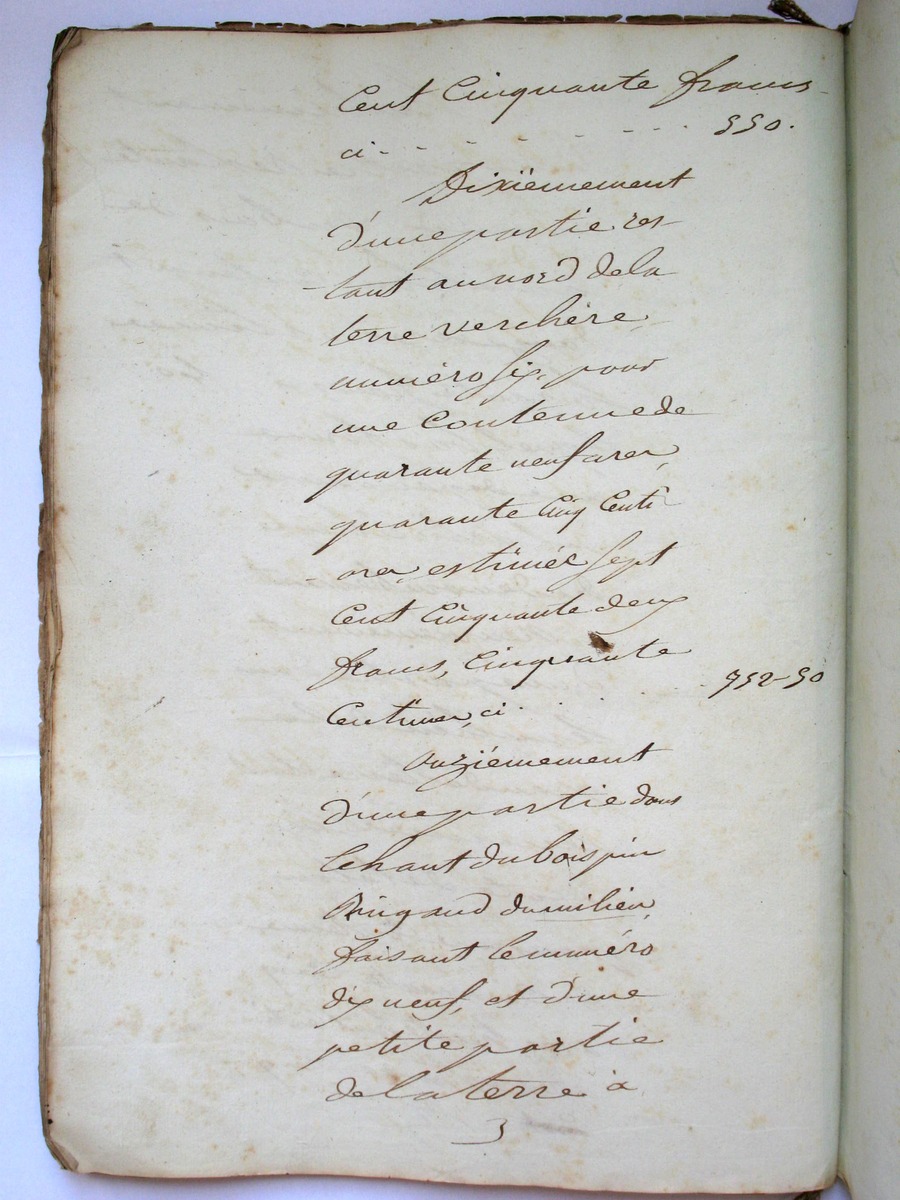 Cent Cinquante francs
ci - - - - - - - - 550.
Dixièmement
d'une partie res-
-tant au nord de la
terre verchère
numéro six, pour
une Contenue de
quarante neuf ares,
quarante Cinq Centi-
-ares, estimée Sept
Cent Cinquante deux
francs, Cinquante
Centimes, ci - - - - 752-50
Onzièmement
d'une partie dans
le haut du bois pin
Rigaud du milieu,
faisant le numéro
dix neuf, et d'une
petite partie
de la terre à
3